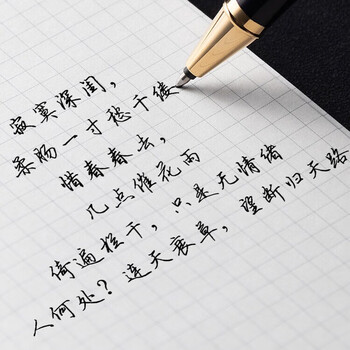 寂寞深闺，
柔肠一寸愁千缕
惜春春去，
几点催花雨
倚遍栏干，只是无情绪
人何处？连天衰草，望断归天路